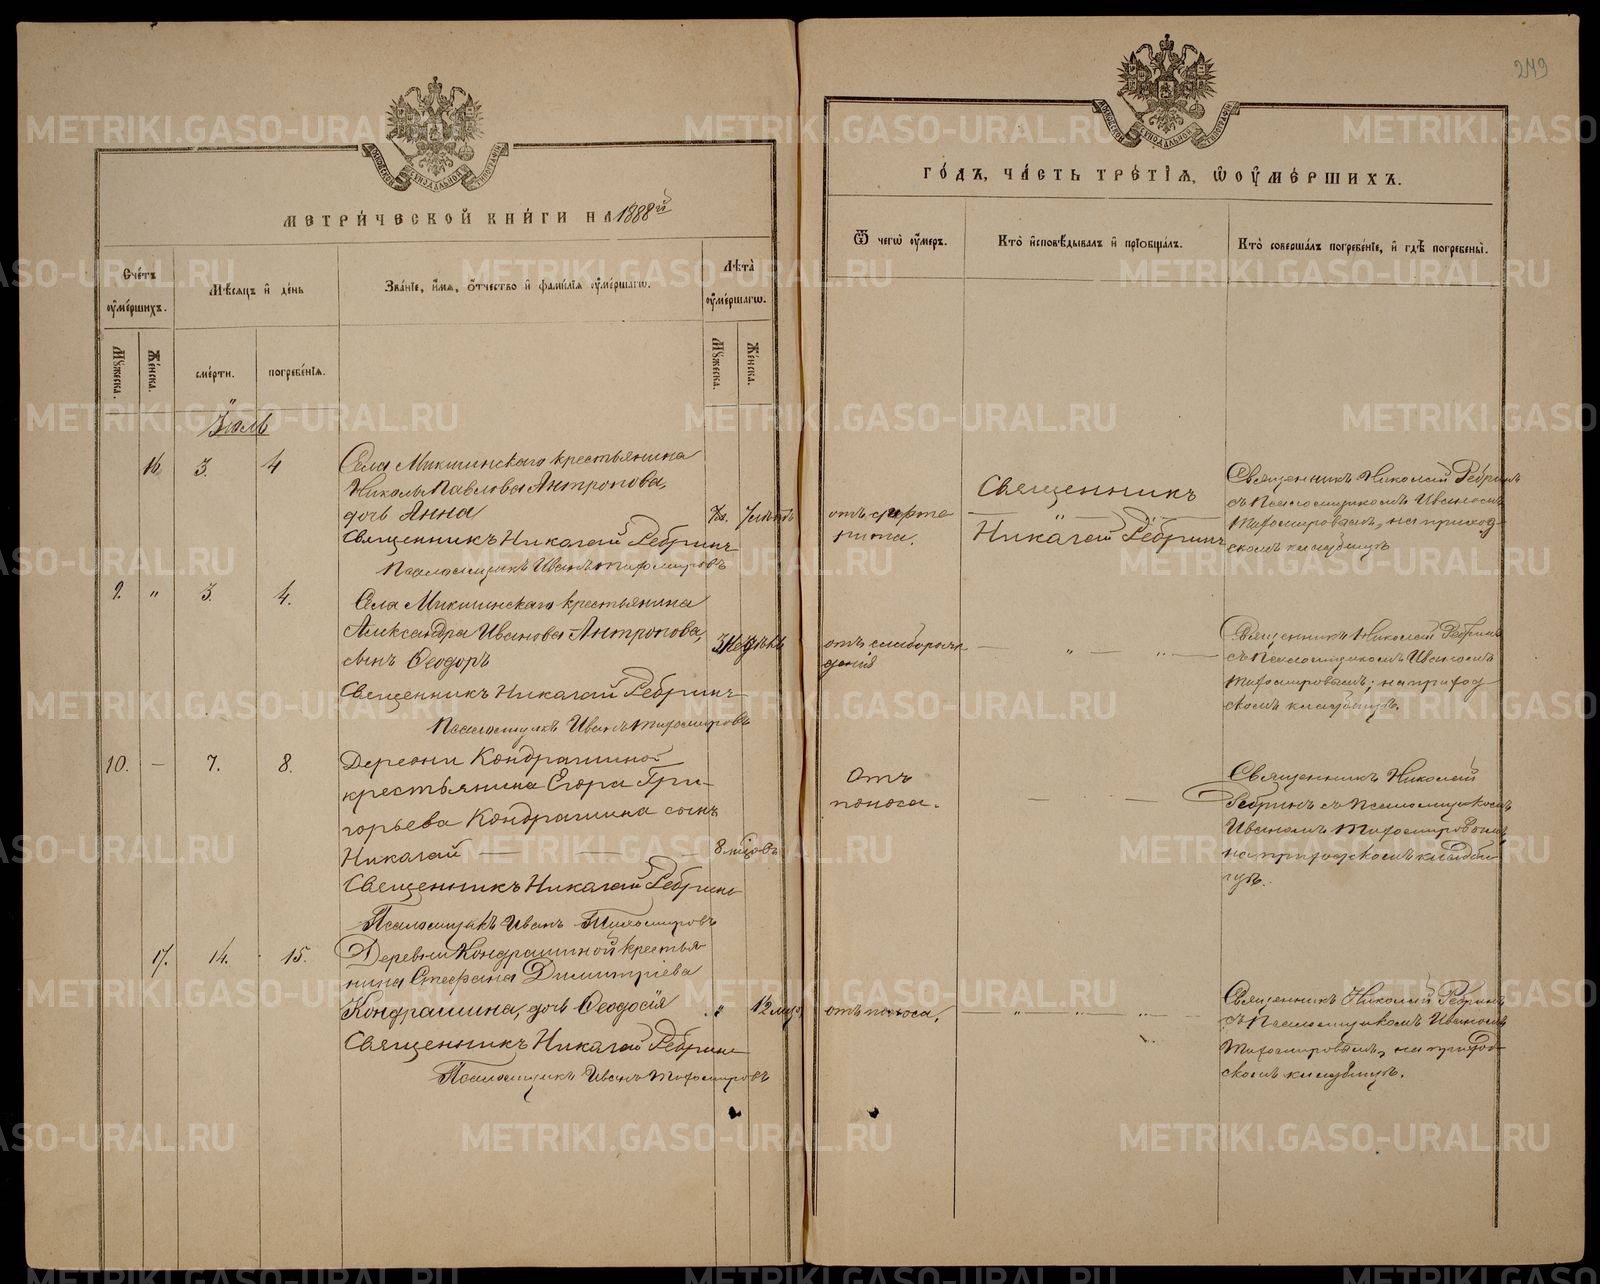 249
МОСКОВСКОЙ СУНОДАЛЬНОЙ ТИПОГРАФІИ
МЕТРИ́ЧЕСКОЙ КНИ́ГИ НА 1888й
Сче́тъ ᲂу҆ме́ршихъ.
Мѣ́сяцъ и҆ де́нь
Зва́нїе, и҆́мѧ, ѻ҆́тчество и҆ фами́лїѧ ᲂу҆ме́ршагѡ.
Лѣ́та ᲂу҆ме́ршагѡ.
Мꙋ́жеска.
Же́нска.
сме́рти.
погребе́нїѧ.
Мꙋ́жеска.
Же́нска.
Іюль
16. 3. 4 Села Микшинскаго крестьянина
Николы Павлова Антропова,
дочь Анна
Священникъ Николай Ребринъ
Псаломщикъ Иванъ Тихомировъ
9. " 3. 4. Села Микшинскаго крестьянина
Александра Иванова Антропова,
сынъ Ѳеодоръ 3 недѣли
Священникъ Николай Ребринъ
Псаломщикъ Иванъ Тихомировъ
10. — 7. 8. Деревни Кондрашиной
крестьянина Егора Гри-
горьева Кондрашина сынъ
Николай — — — 8 мцовъ
Священникъ Николай Ребринъ
Псаломщикъ Иванъ Тихомировъ
17. 14. 15. Деревни Кондрашиной крестья-
нина Стефана Димитріева
Кондрашина, дочь Ѳеодосія " 12 мцо,
Священникъ Николай Ребринъ
Псаломщикъ Иванъ Тихомировъ
МОСКОВСКОЙ СУНОДАЛЬНОЙ ТИПОГРАФІИ
ГО́ДЪ, ЧА́СТЬ ТРЕ́ТЇѦ, Ѡ ОУМЕ́РШИХЪ.
Ѿ чегѡ̀ ᲂу҆́меръ.
Кто̀ и҆сповѣ́дывалъ и҆ прїѡбща́лъ.
Кто̀ соверша́лъ погребе́нїе, и҆ гдѣ̀ погребены̀.
Священникъ
Николай Ребринъ
Священникъ Николай Ребринъ
съ Псаломщикомъ Иваномъ
Тихомировымъ, на приход-
скомъ кладбищѣ
отъ слаборож-
денія
— " — " —
Священникъ Николай Ребринъ
съ Псаломщикомъ Иваномъ
Тихомировымъ, на приход-
скомъ кладбищѣ.
Отъ
поноса.
— —
Священникъ Николай
Ребринъ съ псаломщикомъ
Иваномъ Тихомировымъ
на приходскомъ кладби-
щѣ.
отъ поноса,
— " — " — " —
Священникъ Николай Ребринъ
съ Псаломщикомъ Иваномъ
Тихомировымъ, на приход-
скомъ кладбищѣ.
METRIKI.GASO-URAL.RU